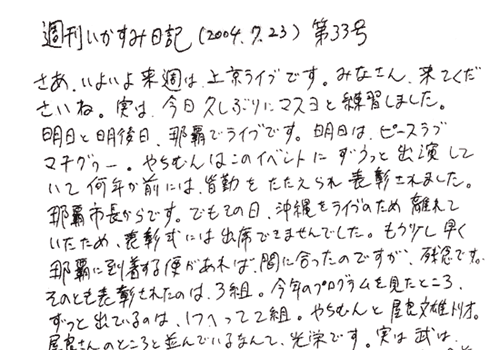 週刊いかすみ日記(2004.7.23) 第33号
さあ、いよいよ来週は、上京ライブです。みなさん、来てくだ
さいね。実は、今日久しぶりにマスヨと練習しました。
明日と明後日、那覇でライブです。明日は、ピースラブ
マチグヮー。やちむんはこのイベントに ずうっと出演して
いて何年か前には、皆勤をたたえられ表彰されました。
那覇市長からです。でもその日、沖縄をライブのため離れて
いたため、表彰式には出席できませんでした。もう少し早く
那覇に到着する便があれば、間に合ったのですが、残念です。
そのとき表彰されたのは、3組。今年のプログラムを見たところ、
ずっと出ているのは、1つへって2組。やちむんと屋良文雄トリオ。
屋良さんのところと並んでいるなんて、光栄です。実は 武は、